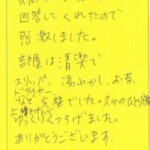 回答してくれたので
感激しました。
部屋は清潔で
スリッパ、湯わかし、お茶、
ドライヤー
など 完備でした。久々のひとり旅
ゆっくりくつろげました。
ありがとうございます。